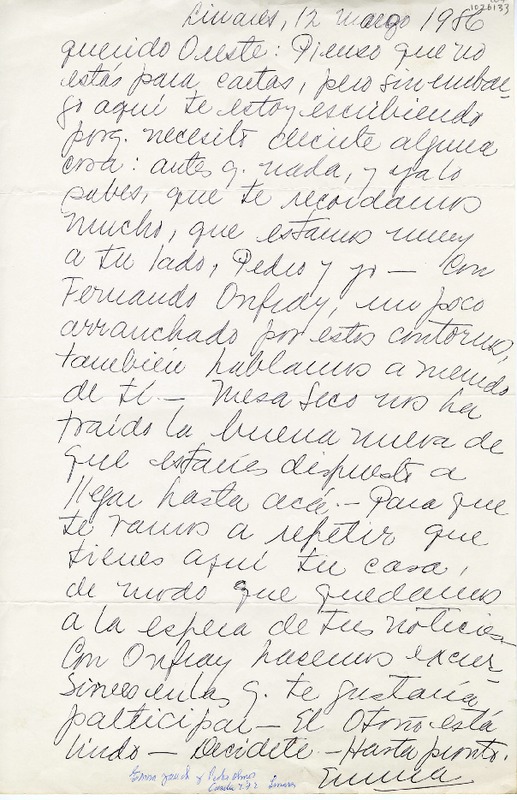 1026133
Linares, 12 marzo 1986
querido Oreste: Pienso que no
estás para cartas, pero sin embar-
go aquí te estoy escribiendo
porq. necesito decirte alguna
cosa: antes q. nada, y ya lo
sabes, que te recordamos
mucho, que estamos muy
a tu lado, Pedro y yo — Con
Fernando Onfray, un poco
arranchado por estos contornos,
también hablamos a menudo
de tí — Mesa Seco nos ha
traído la buena nueva de
que estarías dispuesto a
llegar hasta acá. — Para que
te vamos a repetir que
tienes aquí tu casa,
de modo que quedamos
a la espera de tus noticias
Con Onfray hacemos excur-
siones en las q. te gustaría
participar — El Otoño está
lindo — Decídete — Hasta pronto.
Emma
Emma Jauch y Pedro Olmos
Linares